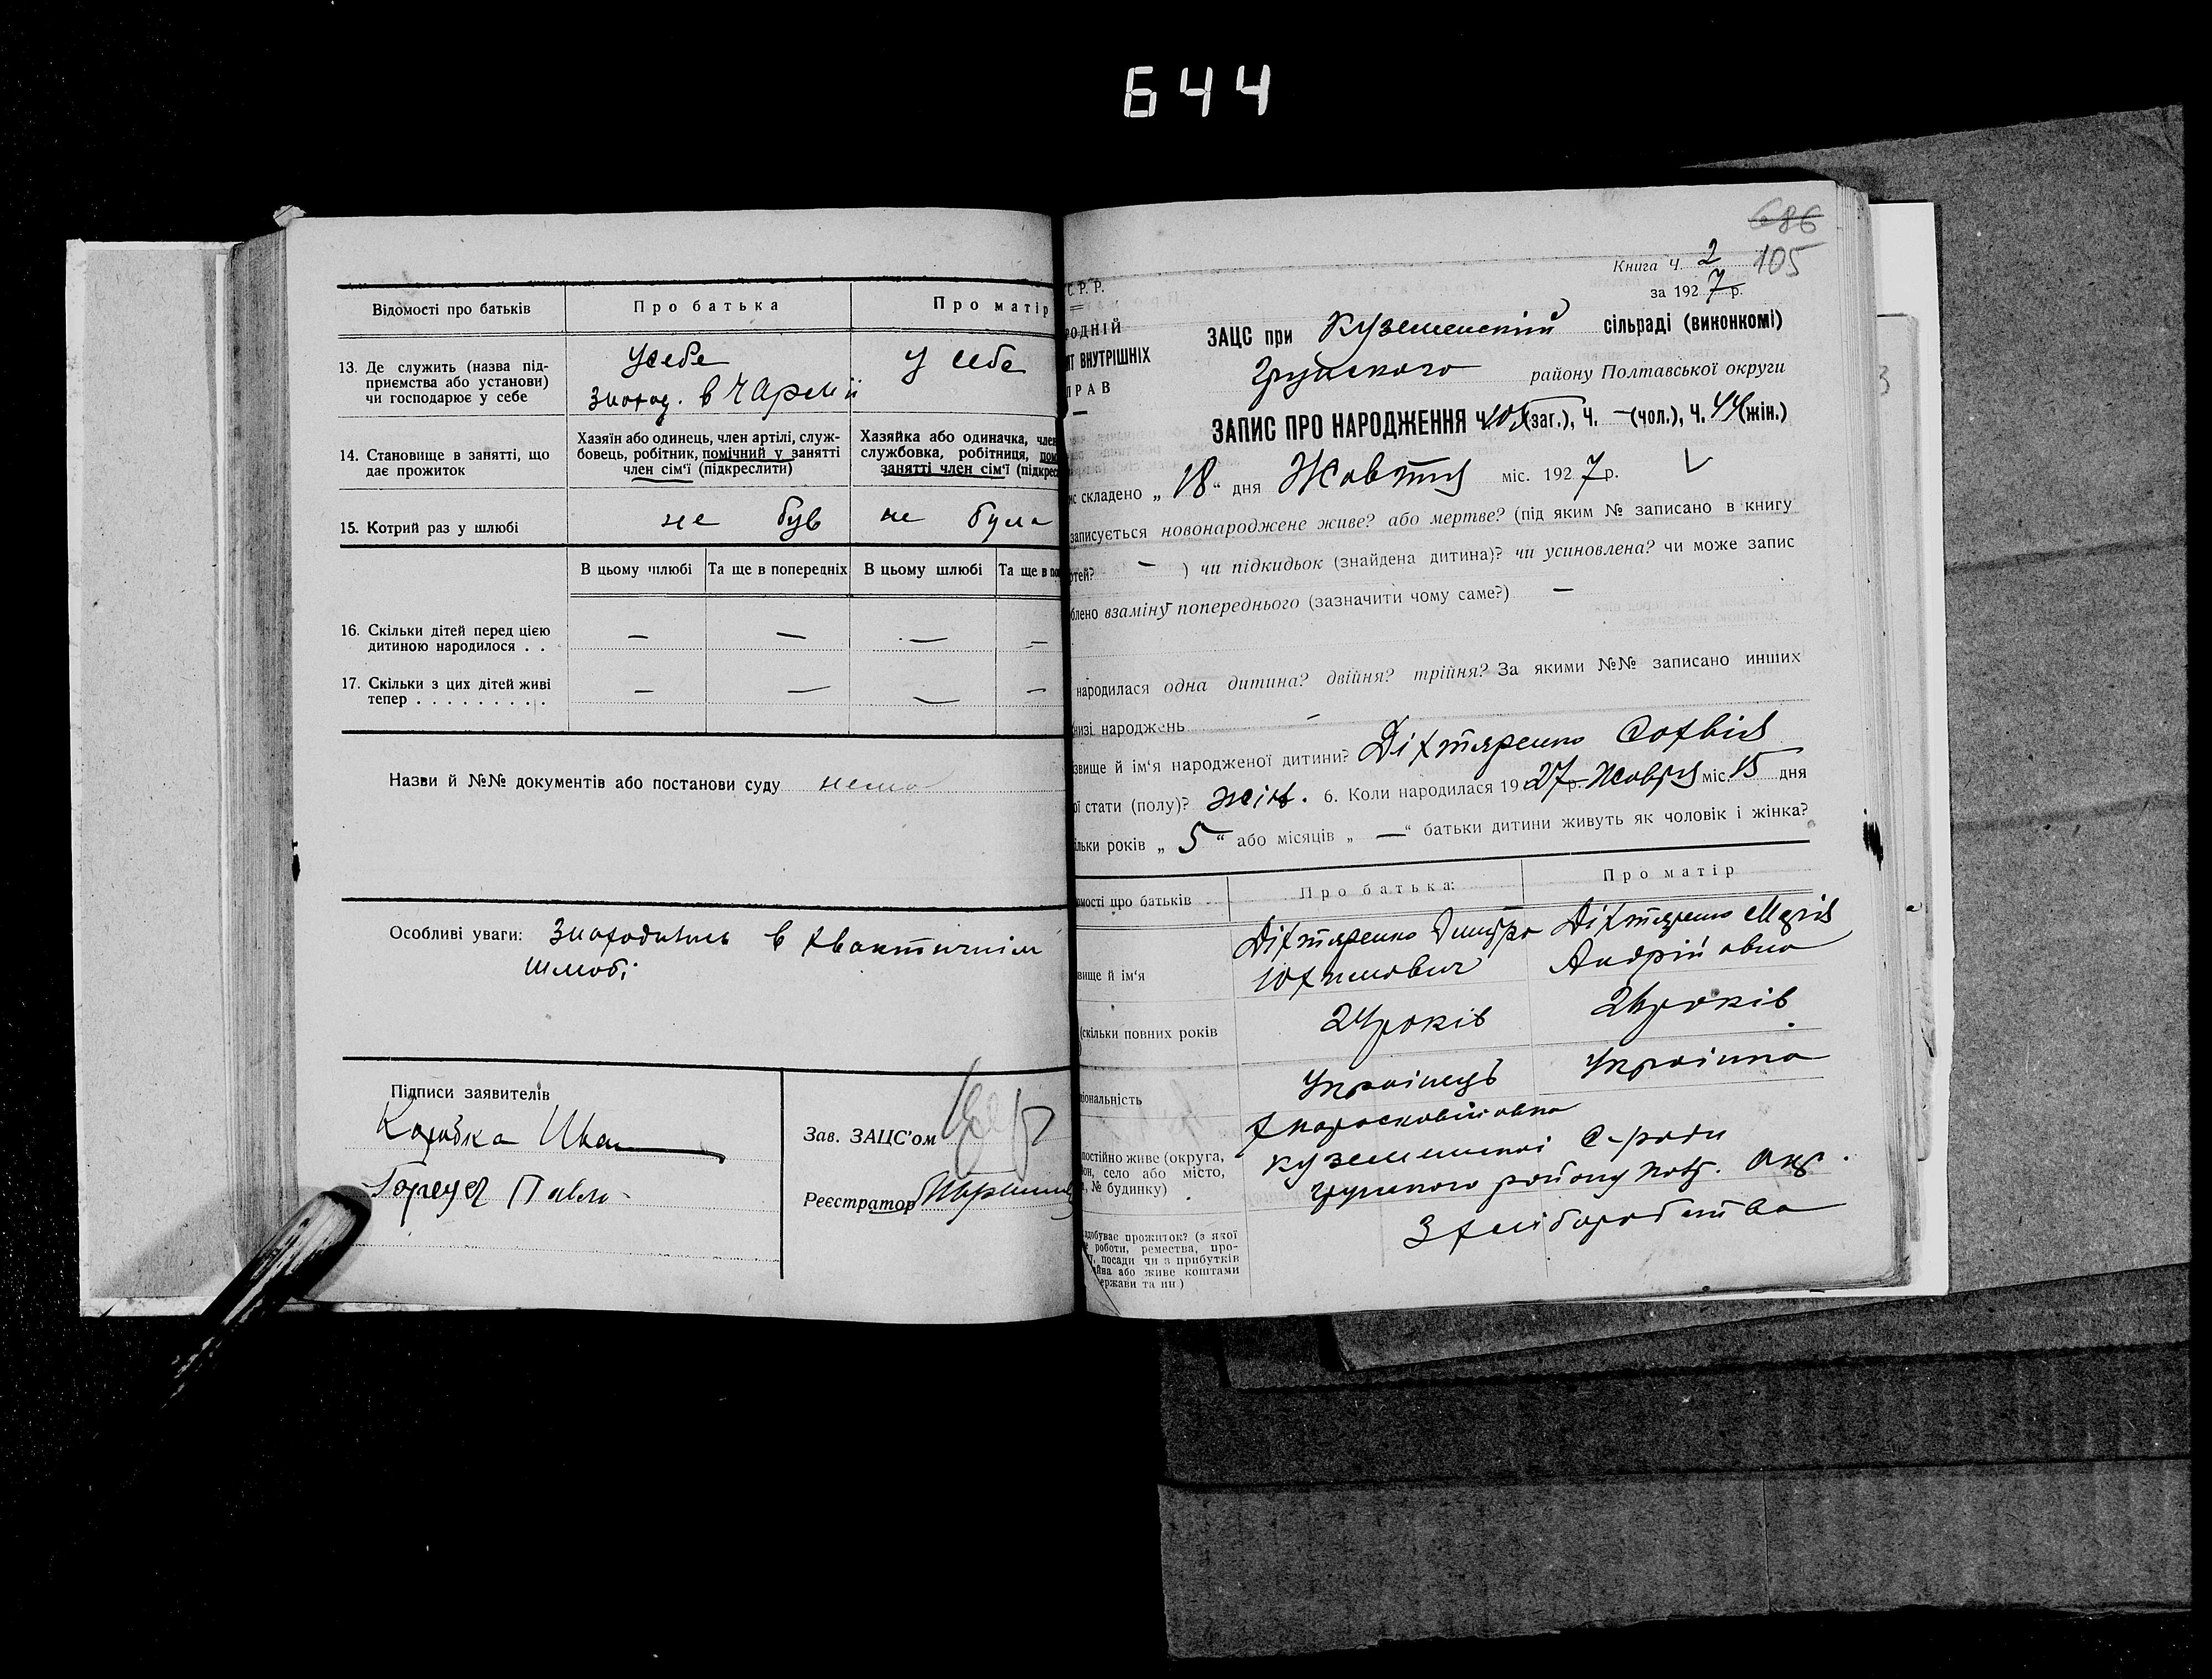 644
Відомості про батьків
Про батька
Про матір
13. Де служить (назва під-
приємства або установи)
чи господарює у себе
у себе
у себе
знаход. в ч Армії
14. Становище в занятті, що
дає прожиток
Хазяїн або одинець, член артілі, служ-
бовець, робітник, помічний у занятті
член сім'ї (підкреслити)
Хазяйка або одиначка, член
службовка, робітниця, пом
занятті член сім'ї (підкрес
15. Котрий раз у шлюбі
не був
не була
В цьому шлюбі
Та ще в попередніх
В цьому шлюбі
Та ще в по
16. Скільки дітей перед цією
дитиною народилося . .
— — — —
17. Скільки з цих дітей живі
тепер . . . . . . . . .
— — — —
Назви й №№ документів або постанови суду нема
Особливі уваги: Знаходились в фвактичнім
шлюбі
Підписи заявителів
Коробка Иван
Павло
Зав. ЗАЦС'ом
Реєстратор
686
105
Книга Ч. 2
за 1927 р.
С. Р. Р.
РОДНІЙ
АТ ВНУТРІШНІХ
ПРАВ
ЗАЦС при Куземенській сільраді (виконкомі)
Грунського району Полтавської округи
ЗАПИС ПРО НАРОДЖЕННЯ Ч. 105 (заг.), Ч. — (чол.), Ч. 44 (жін.)
ис складено „18" дня Жовтня міс. 1927 р.
записується новонароджене живе? або мертве? (під яким № записано в книгу
ртей? — ) чи підкидьок (знайдена дитина)? чи усиновлена? чи може запис
блено взаміну попереднього (зазначити чому саме?) —
народилася одна дитина? двійня? трійня? За якими №№ записано инших
низі народжень —
звище й ім'я народженої дитини? Діхтяренко Софвія
ої стати (полу)? жін. 6. Коли народилася 1927 р. Жовтня міс. 15 дня
ільки років „5" або місяців „—" батьки дитини живуть як чоловік і жінка?
омості про батьків
Про батька:
Про матір
звище й ім'я
Діхтяренко Дмитро
Юхимович
Діхтяренко Марія
Андрійовна
(скільки повних років
24 років
26 років
ціональність
Українець
Українка
постійно живе (округа,
он, село або місто,
, № будинку)
Куземенської С-ради
Грунського району Полт. Окр.
здобуває прожиток? (з якої
е роботи, ремества, про-
ї, посади чи з прибутків
айна або живе коштами
ержави та ин)
З хліборобства